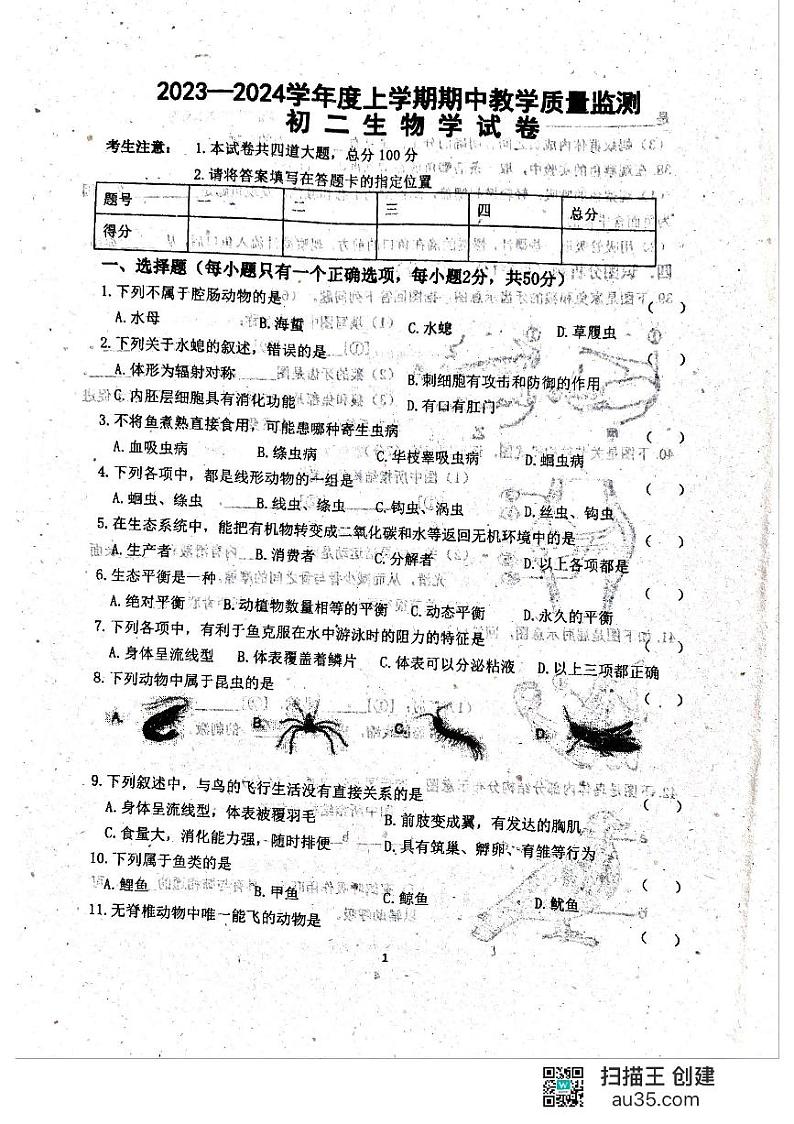 2023—2024学年度上学期期中教学质量监测
初 二 生 物 学 试 卷
考生注意： 1.本试卷共四道大题，总分100分
2.请将答案填写在答题卡的指定位置
题号 一 二 三 四 总分
得分
一、选择题（每小题只有一个正确选项，每小题2分，共50分）
1.下列不属于腔肠动物的是 （ ）
A.水母 B.海蜇 C.水螅 D.草履虫
2.下列关于水螅的叙述，错误的是 （ ）
A.体形为辐射对称 B.刺细胞有攻击和防御的作用
C.内胚层细胞具有消化功能 D.有口有肛门
3.不将鱼煮熟直接食用，可能患哪种寄生虫病 （ ）
A.血吸虫病 B.绦虫病 C.华枝睾吸虫病 D.蛔虫病
4.下列各项中，都是线形动物的一组是 （ ）
A.蛔虫、绦虫 B.线虫、绦虫 C.钩虫、涡虫 D.丝虫、钩虫
5.在生态系统中，能把有机物转变成二氧化碳和水等返回无机环境中的是 （ ）
A.生产者 B.消费者 C.分解者 D.以上各项都是
6.生态平衡是一种 （ ）
A.绝对平衡 B.动植物数量相等的平衡 C.动态平衡 D.永久的平衡
7.下列各项中，有利于鱼克服在水中游泳时的阻力的特征是 （ ）
A.身体呈流线型 B.体表覆盖着鳞片 C.体表可以分泌粘液 D.以上三项都正确
8.下列动物中属于昆虫的是 （ ）
A. B. C. D.
9.下列叙述中，与鸟的飞行生活没有直接关系的是 （ ）
A.身体呈流线型，体表被覆羽毛 B.前肢变成翼，有发达的胸肌
C.食量大，消化能力强，随时排便 D.具有筑巢、孵卵、育雏等行为
10.下列属于鱼类的是 （ ）
A.鲤鱼 B.甲鱼 C.鲸鱼 D.鱿鱼
11.无脊椎动物中唯一能飞的动物是 （ ）
1
扫描王 创建
au35.com